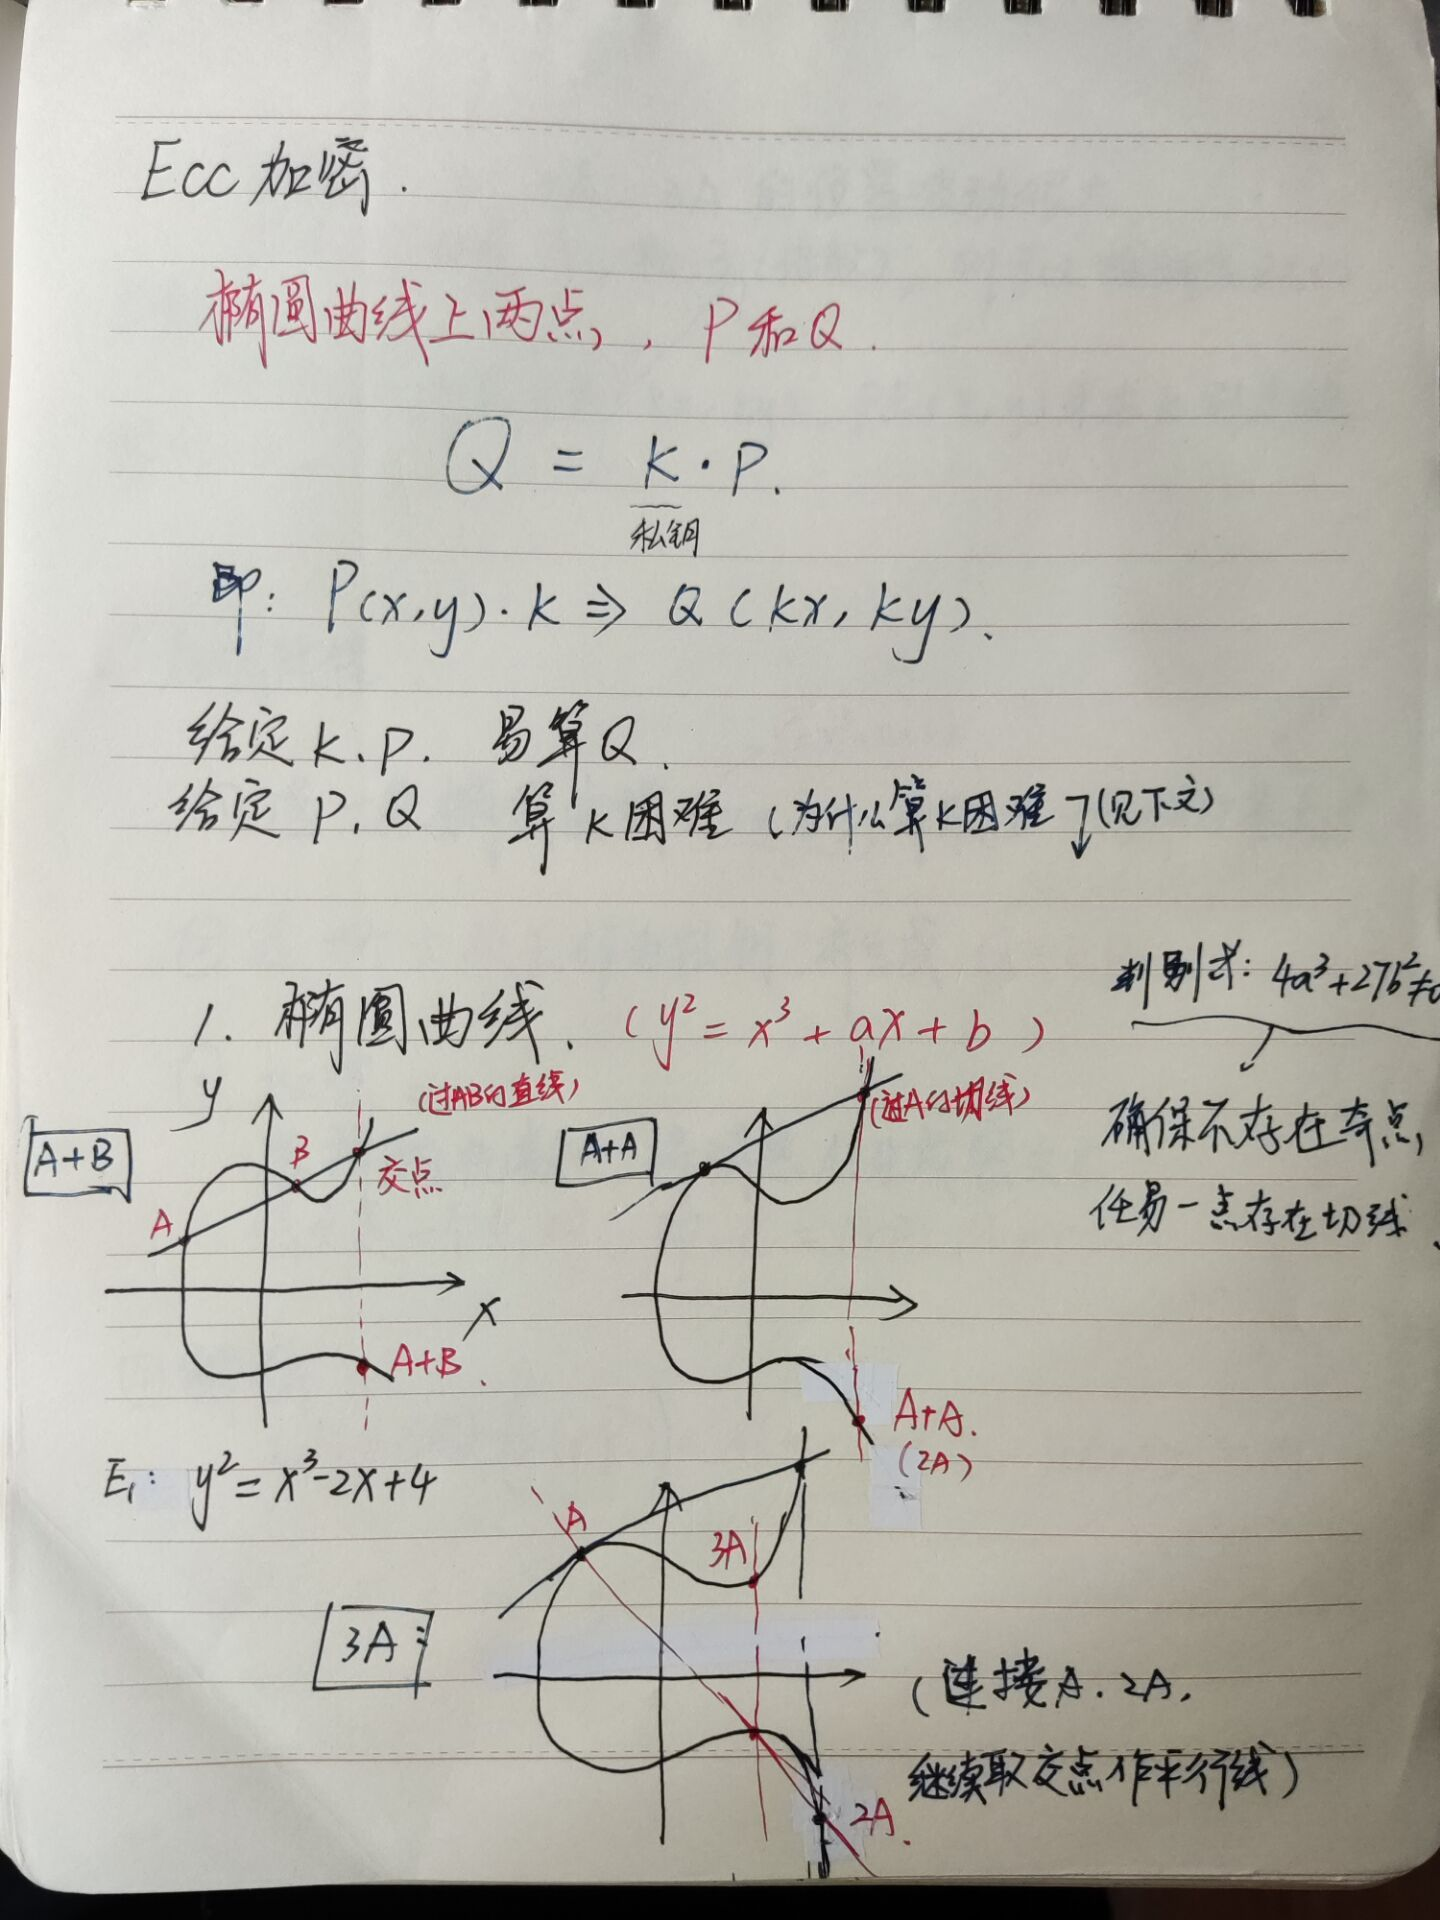 Ecc 加密.
椭圆曲线上两点, P和Q.
Q = k·P.
私钥
即: P(x,y)·k ⇒ Q(kx, ky).
给定k.P. 易算Q.
给定 P, Q 算k困难 (为什么算k困难 (见下文)
判别式: 4a³+27b²≠0
1. 椭圆曲线. (y² = x³ + ax + b)
确保不存在奇点,
任易一点存在切线.
y
(过AB的直线)
(过A的切线)
A+B
B
交点
A
x
A+B.
A+A
A+A.
(2A)
E₁: y² = x³-2x+4
A
3A
3A:
(连接A. 2A,
继续取交点作平行线)
2A.